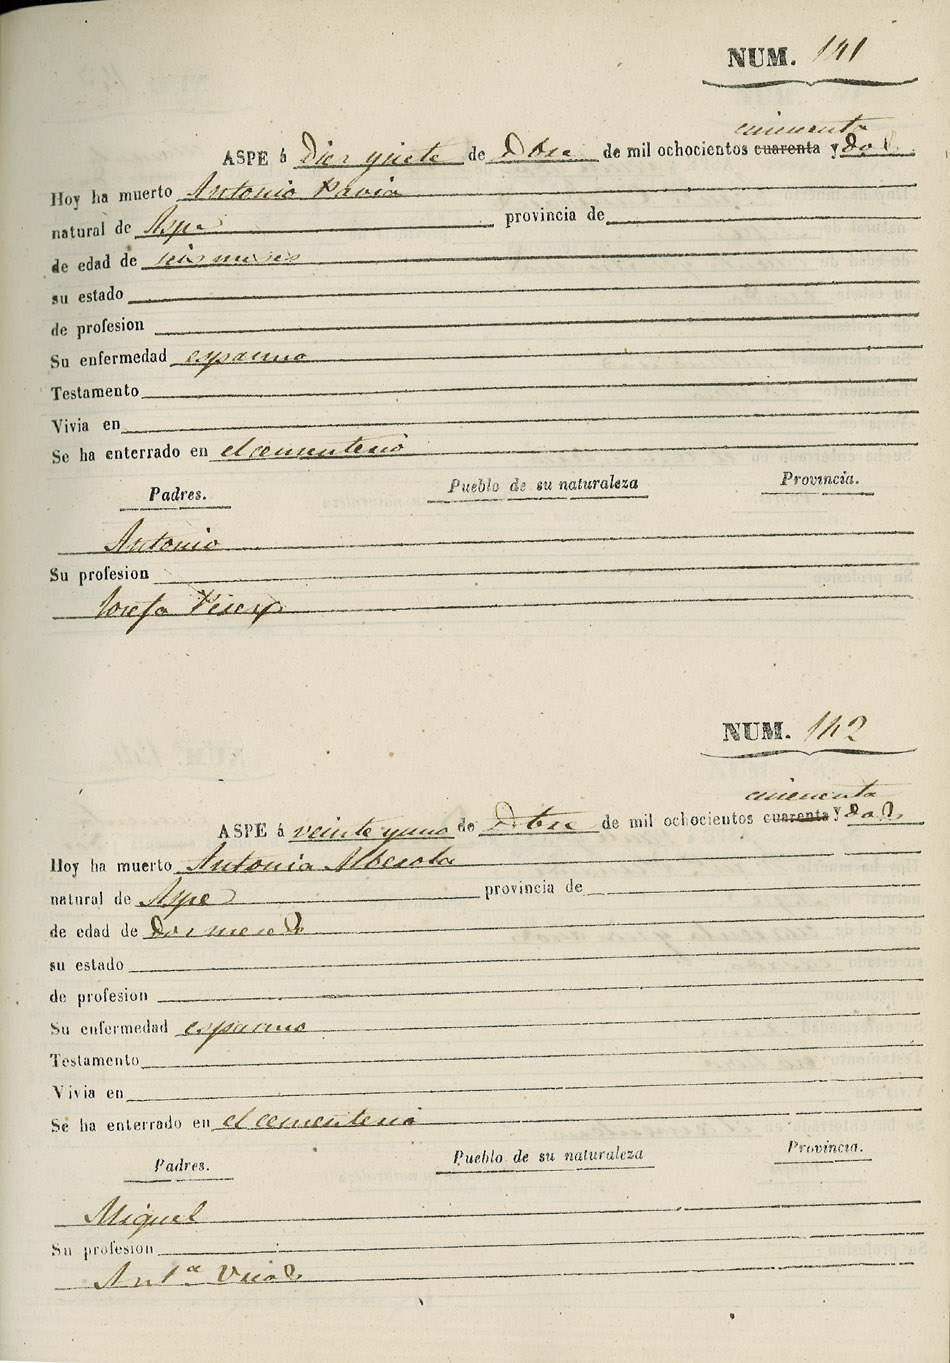 NUM. 141
cincuenta
ASPE á Diez y siete de Dbre de mil ochocientos cuarenta y dos
Hoy ha muerto Antonio Pavia
natural de Aspe provincia de
de edad de seis meses
su estado
de profesion
Su enfermedad espasmo
Testamento
Vivia en
Se ha enterrado en el cementerio
Padres. Pueblo de su naturaleza Provincia.
Antonio
Su profesion
Josefa
NUM. 142
cincuenta
ASPE á veinte y uno de Dbre de mil ochocientos cuarenta y dos
Hoy ha muerto Antonia Alberola
natural de Aspe provincia de
de edad de dos meses
su estado
de profesion
Su enfermedad espasmo
Testamento
Vivia en
Se ha enterrado en el cementerio
Padres. Pueblo de su naturaleza Provincia.
Miguel
Su profesion
Antª